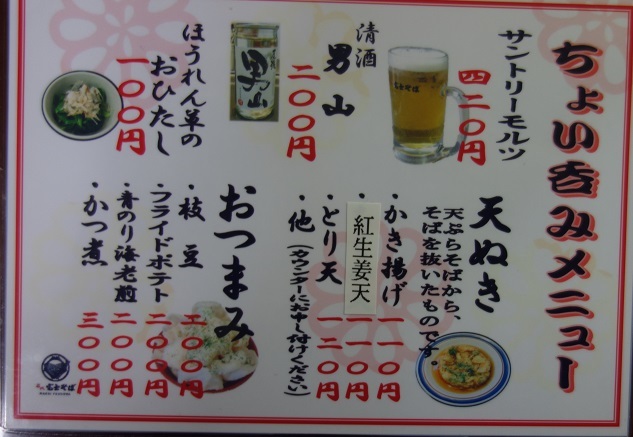 ちょい呑みメニュー
サントリーモルツ
四二〇円
清酒
男山
二〇〇円
男山
ほうれん草の
おひたし
一〇〇円
天ぬき
天ぷらそばから、
そばを抜いたものです。
・かき揚げ
一一〇円
・紅生姜天
一一〇円
・とり天
一二〇円
・他(カウンターにお申し付けください)
おつまみ
・枝豆
二〇〇円
・フライドポテト
二〇〇円
・青のり海老煎
二〇〇円
・かつ煮
三〇〇円